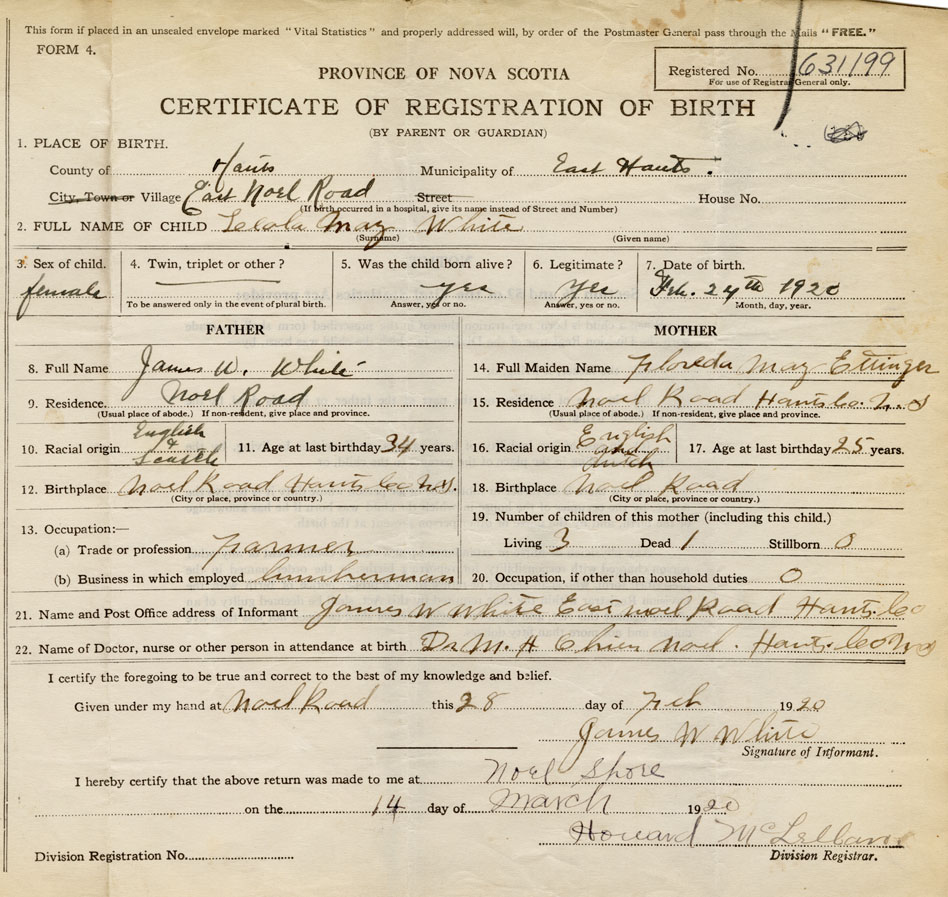 This form if placed in an unsealed envelope marked "Vital Statistics" and properly addressed will, by order of the Postmaster General pass through the Mails "FREE."
FORM 4.
PROVINCE OF NOVA SCOTIA
Registered No. 631199
For use of Registrar General only.
CERTIFICATE OF REGISTRATION OF BIRTH
(BY PARENT OR GUARDIAN)
1. PLACE OF BIRTH.
County of Hants Municipality of East Hants.
City, Town or Village East Noel Road Street House No.
(If birth occurred in a hospital, give its name instead of Street and Number)
2. FULL NAME OF CHILD Leola May White
(Surname) (Given name)
3. Sex of child. 4. Twin, triplet or other? 5. Was the child born alive? 6. Legitimate? 7. Date of birth.
female yes yes Feb. 24th 1920
To be answered only in the event of plural birth. Answer, yes or no. Answer, yes or no. Month, day, year.
FATHER MOTHER
8. Full Name James W. White 14. Full Maiden Name Floreda May Ettinger
9. Residence. Noel Road 15. Residence Noel Road Hants Co. N.S
(Usual place of abode.) If non-resident, give place and province. (Usual place of abode.) If non-resident, give place and province.
10. Racial origin English & Scotch 11. Age at last birthday 34 years. 16. Racial origin English and dutch 17. Age at last birthday 25 years.
12. Birthplace Noel Road Hants Co N.S. 18. Birthplace Noel Road
(City or place, province or country.) (City or place, province or country.)
13. Occupation:— 19. Number of children of this mother (including this child.)
(a) Trade or profession farmer Living 3 Dead 1 Stillborn 0
(b) Business in which employed lumberman 20. Occupation, if other than household duties 0
21. Name and Post Office address of Informant James W White East Noel Road Hants. Co
22. Name of Doctor, nurse or other person in attendance at birth Dr M. H Noel. Hants. Co N S
I certify the foregoing to be true and correct to the best of my knowledge and belief.
Given under my hand at Noel Road this 28 day of Feb 1920
James W White
Signature of Informant.
I hereby certify that the above return was made to me at Noel Shore
on the 14 day of March 1920
Howard
Division Registration No. Division Registrar.